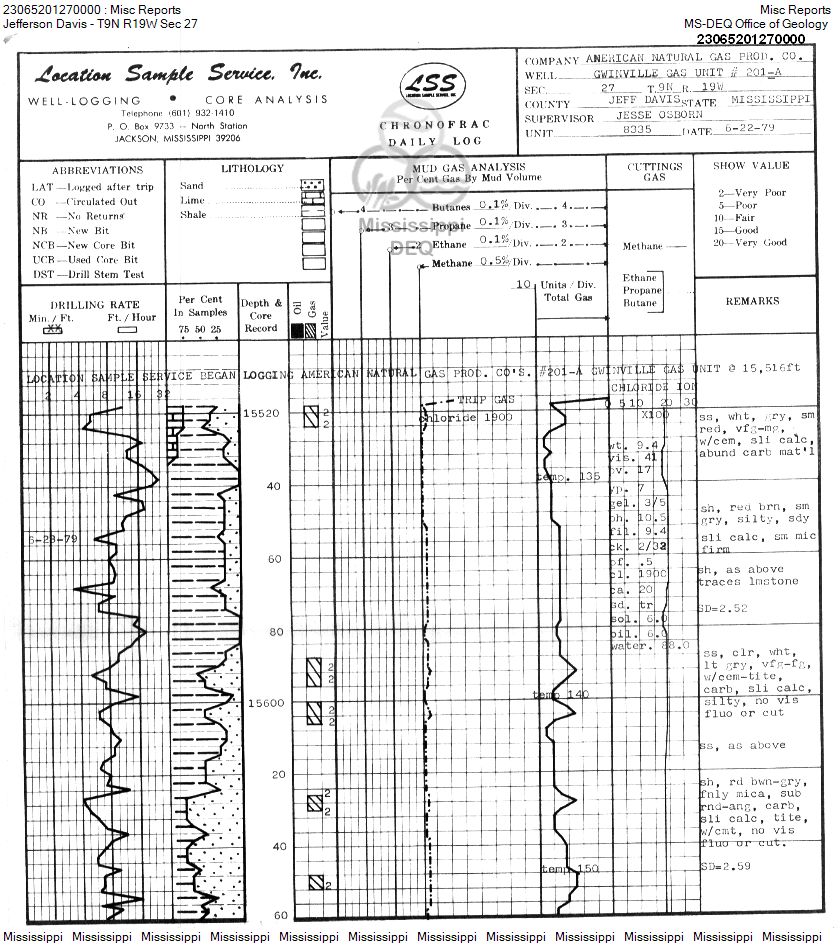 23065201270000 : Misc Reports
Misc Reports
Jefferson Davis - T9N R19W Sec 27
MS-DEQ Office of Geology
23065201270000
Location Sample Service, Inc.
WELL-LOGGING • CORE ANALYSIS
Telephone (601) 932-1410
P. O. Box 9733 -- North Station
JACKSON, MISSISSIPPI 39206
LSS
LOCATION SAMPLE SERVICE, INC.
CHRONOFRAC
DAILY LOG
COMPANY AMERICAN NATURAL GAS PROD. CO.
WELL GWINVILLE GAS UNIT # 201-A
SEC. 27 T. 9N R. 19W
COUNTY JEFF DAVIS STATE MISSISSIPPI
SUPERVISOR JESSE OSBORN
UNIT 8335 DATE 6-22-79
ABBREVIATIONS
LAT —Logged after trip
CO —Circulated Out
NR —No Returns
NB —New Bit
NCB—New Core Bit
UCB—Used Core Bit
DST—Drill Stem Test
LITHOLOGY
Sand
Lime
Shale
MUD GAS ANALYSIS
Per Cent Gas By Mud Volume
4 Butanes 0.1% Div. 4.
Propane 0.1% Div. 3.
2 Ethane 0.1% Div. 2.
Methane 0.5% Div.
10 Units / Div.
Total Gas
Mississippi
DEQ
CUTTINGS
GAS
Methane
Ethane
Propane
Butane
SHOW VALUE
2—Very Poor
5—Poor
10—Fair
15—Good
20—Very Good
DRILLING RATE
Min. / Ft. Ft. / Hour
XX
Per Cent
In Samples
75 50 25
Depth &
Core
Record
Oil
Gas
Value
REMARKS
LOCATION SAMPLE SERVICE BEGAN LOGGING AMERICAN NATURAL GAS PROD. CO'S. #201-A GWINVILLE GAS UNIT @ 15,516ft
2 4 8 16 32
15520
40
60
80
15600
20
40
60
6-23-79
2
2
2
2
2
2
2
2
2
TRIP GAS
chloride 1900
temp. 135
temp 140
temp 150
CHLORIDE ION
0 5 10 20 30
X100
wt. 9.4
vis. 41
pv. 17
yp. 7
gel. 3/5
ph. 10.5
fil. 9.4
ck. 2/32
pf. .5
cl. 1900
ca. 20
sd. tr
sol. 6.0
oil. 6.0
water. 88.0
ss, wht, gry, sm
red, vfg-mg,
w/cem, sli calc,
abund carb mat'l
sh, red brn, sm
gry, silty, sdy
sli calc, sm mic
firm
sh, as above
traces lmstone
SD=2.52
ss, clr, wht,
lt gry, vfg-fg,
w/cem-tite,
carb, sli calc,
silty, no vis
fluo or cut
ss, as above
sh, rd bwn-gry,
fnly mica, sub
rnd-ang, carb,
sli calc, tite,
w/cmt, no vis
fluo or cut.
SD=2.59
Mississippi Mississippi Mississippi Mississippi Mississippi Mississippi Mississippi Mississippi Mississippi Mississippi Mississippi Mississippi